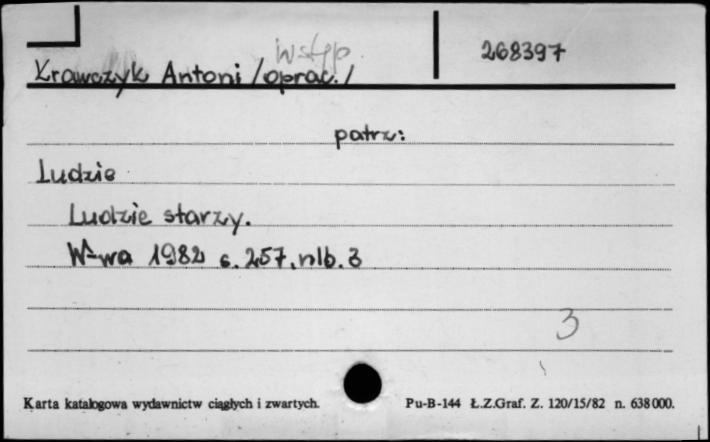 wstęp
268397
Krawczyk Antoni /oprac./
patrz:
Ludzie
Ludzie starzy.
W-wa 1982 s. 257, nlb. 3
3
Karta katalogowa wydawnictw ciągłych i zwartych.
Pu-B-144 Ł.Z.Graf. Z. 120/15/82 n. 638000.